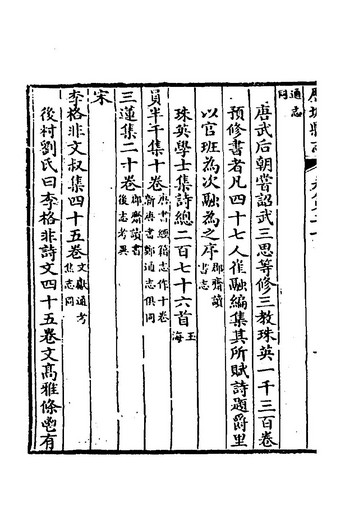 通志
同
唐武后朝嘗詔武三思等修三教珠英一千三百卷
預修書者凡四十七人崔融編集其所賦詩題爵里
以官班為次融為之序郡齋讀書志
珠英學士集詩總二百七十六首玉海
員半千集十卷唐書經籍志作十卷新唐書鄭通志俱同
三蓮集二十卷郡齋讀書後志考異
宋
李格非文叔集四十五卷文獻通考焦志同
後村劉氏曰李格非詩文四十五卷文髙雅條鬯有